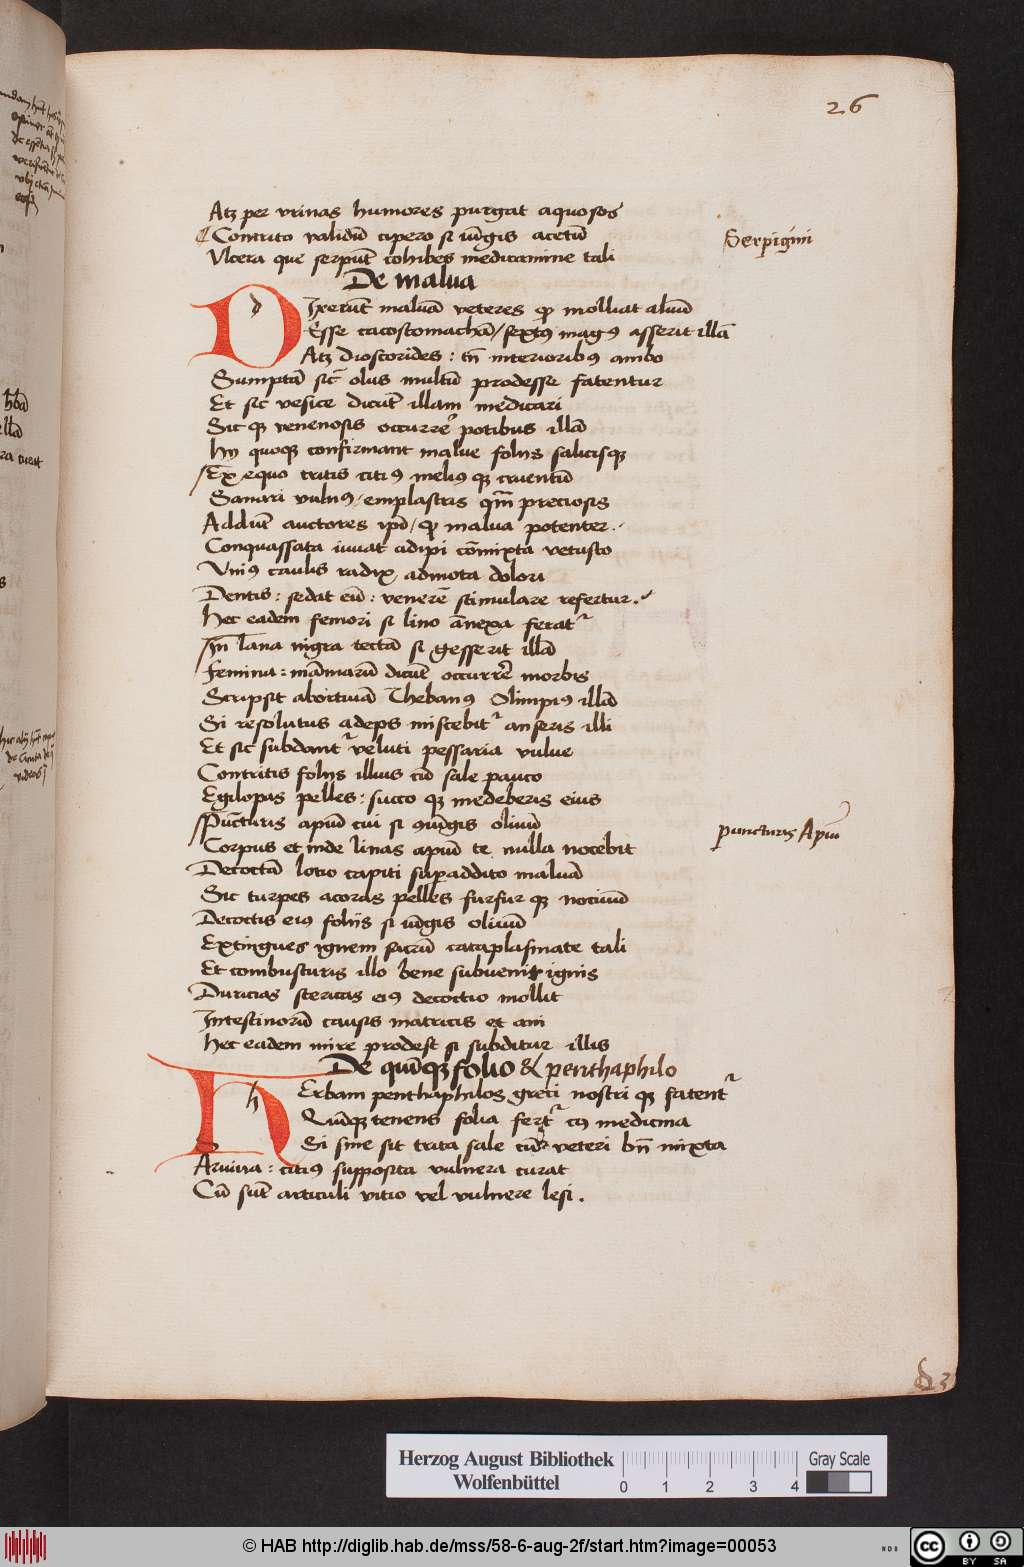 26
Atqꝫ per vrinas humores purgat aquosos
Contrito validū cipero si iūgis acetū
Vlcera que serpūt cohibes medicamine tali
Serpigini
De malua
Dixerūt maluā veteres ꝙ molliat aluū
Esse cacostomachā / sextꝰ magꝰ asserit illā
Atqꝫ dioscorides : tn̄ interioribꝰ ambo
Sumptā sic̄ olus multū prodesse fatentur
Et sic vesice dicūt illam medicari
Sic qꝫ venenosis occurrē potibus illā
Hij quoqꝫ confirmant malue folijs salicisqꝫ
Ex equo tritis citiꝰ meliꝰ qꝫ cruentū
Sanari vulnꝰ / emplastris qm̄ preciosis
Addūt auctores ipd̄ / ꝙ malua potenter
Conquassata iuuat adipi cōmixta vetusto
Vniꝰ caulis radix admota dolori
Dentis : sedat eū : venerē stimulare refertur
Hec eadem femori si lino ānexa ferat᷑
In lana nigra tectā si gesserit illā
Femina : māmarū dicūt occurrē morbis
Scripsit abortiuā Thebanꝰ Olimpiꝰ illā
Si resolutus adeps miscebit᷑ anseris illi
Et sic subdant᷑ veluti pessaria vulue
Contritis folijs illius cū sale pauco
Egilopas pelles : succo qꝫ medeberis eius
Pūcturis apiū cui si ꝯiūgis oliuū
puncturis Apiū
Corpus et inde linas apiū te nulla nocebit
Decoctā lotio capiti suꝑaddito maluā
Sic turpes acoras pelles furfur qꝫ nociuū
Decoctis eiꝰ folijs si iūgis oliuū
Extingues ignem sacrū cataplasmate tali
Et combusturis illo bene subuenit ignis
Duricias stericas eiꝰ decoctio mollit
Intestinorū causis matricis et ani
Hec eadem mire prodest si subditur illis
De quīqꝫ folio & penthaphilo
Herbam penthaphilos greci nostri qꝫ fatent᷑
Quīqꝫ tenens folia fert᷑ cꝰ medicina
Si sine sit trita sale cū veteri bn̄ mixta
Aruina : citiꝰ supposita vulnera curat
Cū sūt articuli vitio vel vulnere lesi .
Herzog August Bibliothek
Wolfenbüttel
0 1 2 3 4
Gray Scale
© HAB http://diglib.hab.de/mss/58-6-aug-2f/start.htm?image=00053
cc BY SA